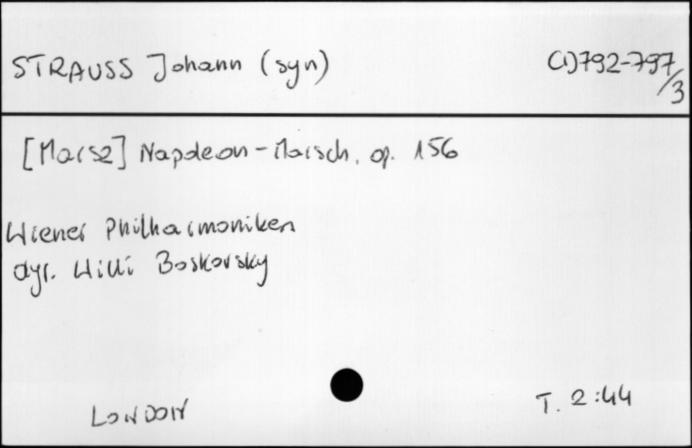 STRAUSS Johann (syn)
CD792-797/3
[Marsz] Napoleon-Marsch, op. 156
Wiener Philharmoniker
dyr. Willi Boskovsky
LONDON
T. 2:44